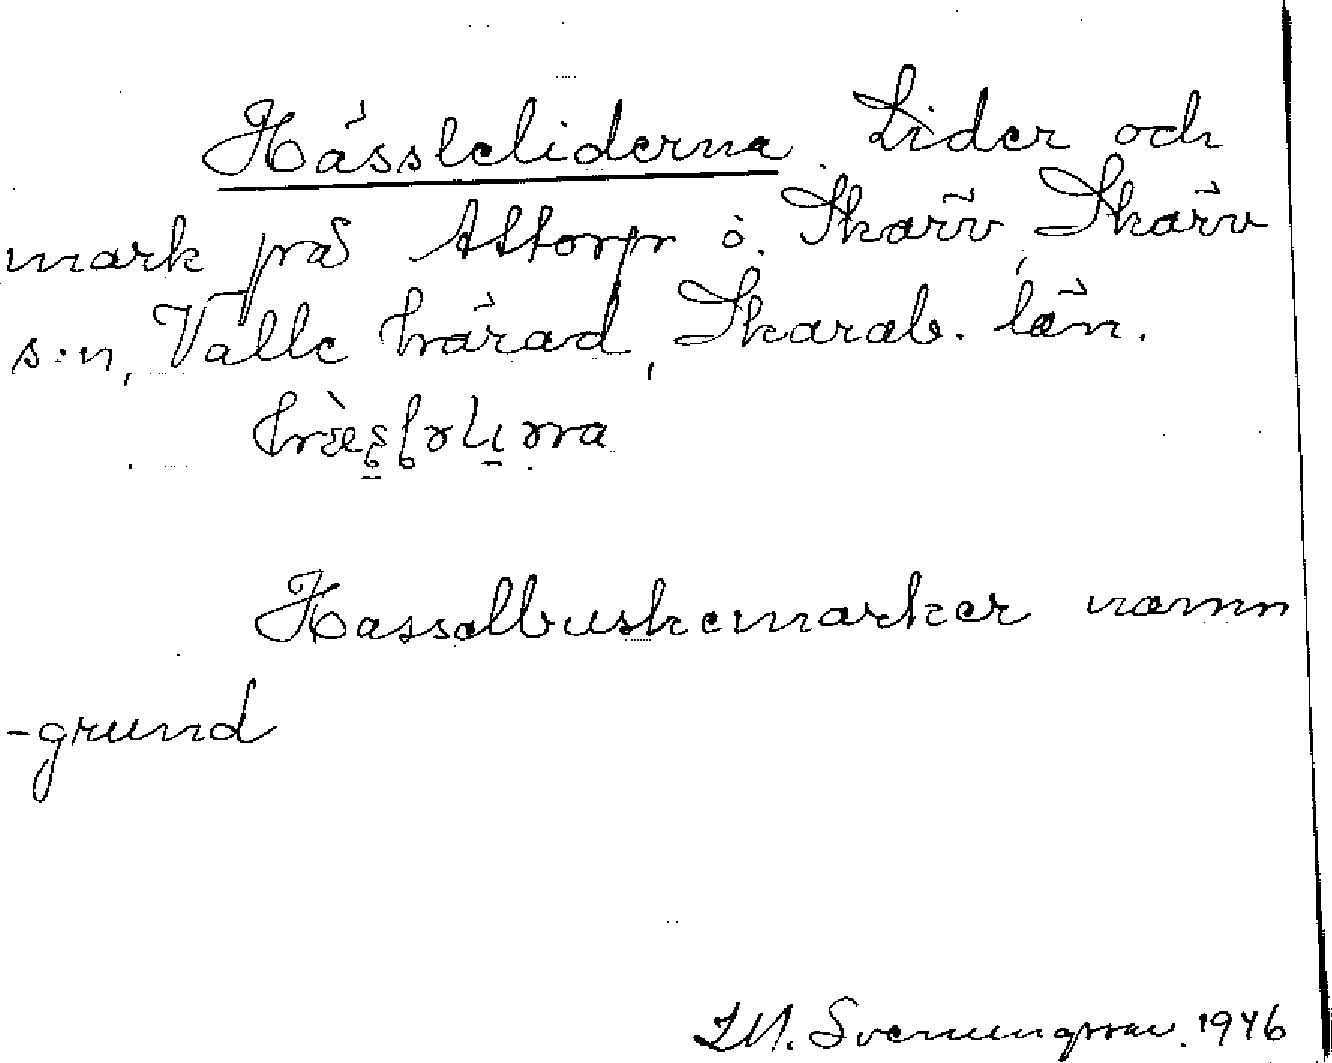 Hässleliderna. Lider och
mark på Attorp ö. Skärv, Skärv
s:n, Valle härad, Skarab. län.
Hasselbuskemarker namn
-grund
Svenungsson. 1946